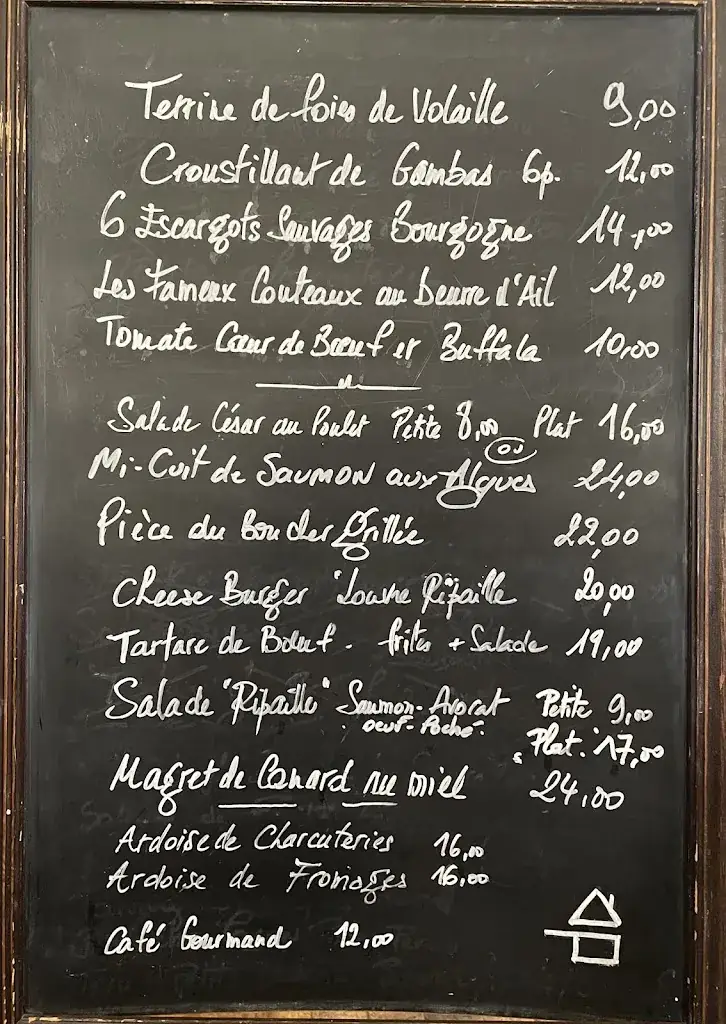 Terrine de foies de Volaille 9,00
Croustillant de Gambas 6p. 12,00
6 Escargots Sauvages Bourgogne 14,00
Les Fameux Couteaux au beurre d'Ail 12,00
Tomate Cœur de Bœuf et Buffala 10,00
Salade César au Poulet Petite 8,00 ou Plat 16,00
Mi-Cuit de Saumon aux Algues 24,00
Pièce du Boucher Grillée 22,00
Cheese Burger Louvre Ripaille 20,00
Tartare de Bœuf. frites + Salade 19,00
Salade "Ripaille" Saumon-Avocat Petite 9,00
oeuf-Poché. Plat. 17,00
Magret de Canard au miel 24,00
Ardoise de Charcuteries 16,00
Ardoise de Fromages 16,00
Café Gourmand 12,00